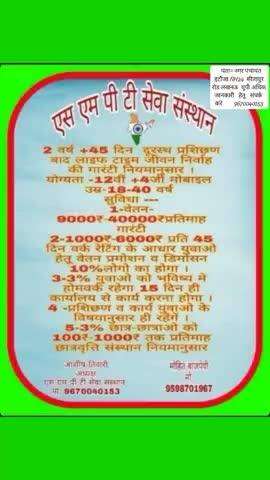 पता- नगर पंचायत
इटौंजा सीतापुर
रोड लखनऊ यूपी अधिक
जानकारी हेतु संपर्क
करें 9670040153
एस एम पी टी सेवा संस्थान
2 वर्ष +45 दिन दूरस्थ प्रशिक्षण
बाद लाइफ टाइम जीवन निर्वाह
की गारंटी नियमानुसार ।
योग्यता -12वीं +4जी मोबाइल
उम्र-18-40 वर्ष
सुविधा ---
1-वेतन-
9000₹ 40000₹प्रतिमाह
गारंटी
2-1000₹-6000₹ प्रति 45
दिन वर्क रेटिंग के आधार युवाओ
हेतु वेतन प्रमोशन व डिमोसन
10%लोगो का होगा ।
3-3% युवाओ को भविष्य मे
होमवर्क रहेगा 15 दिन ही
कार्यालय से कार्य करना होगा ।
4 -प्रशिक्षण व कार्य युवाओ के
विषयानुसार ही रहेगें ।
5-3% छात्र-छात्राओ को
100₹-1000₹ तक प्रतिमाह
छात्रवृत्ति संस्थान नियमानुसार
आशीष तिवारी
अध्यक्ष
एस एम पी टी सेवा संस्थान
9670040153
मोहित बाजपेयी
9598701967